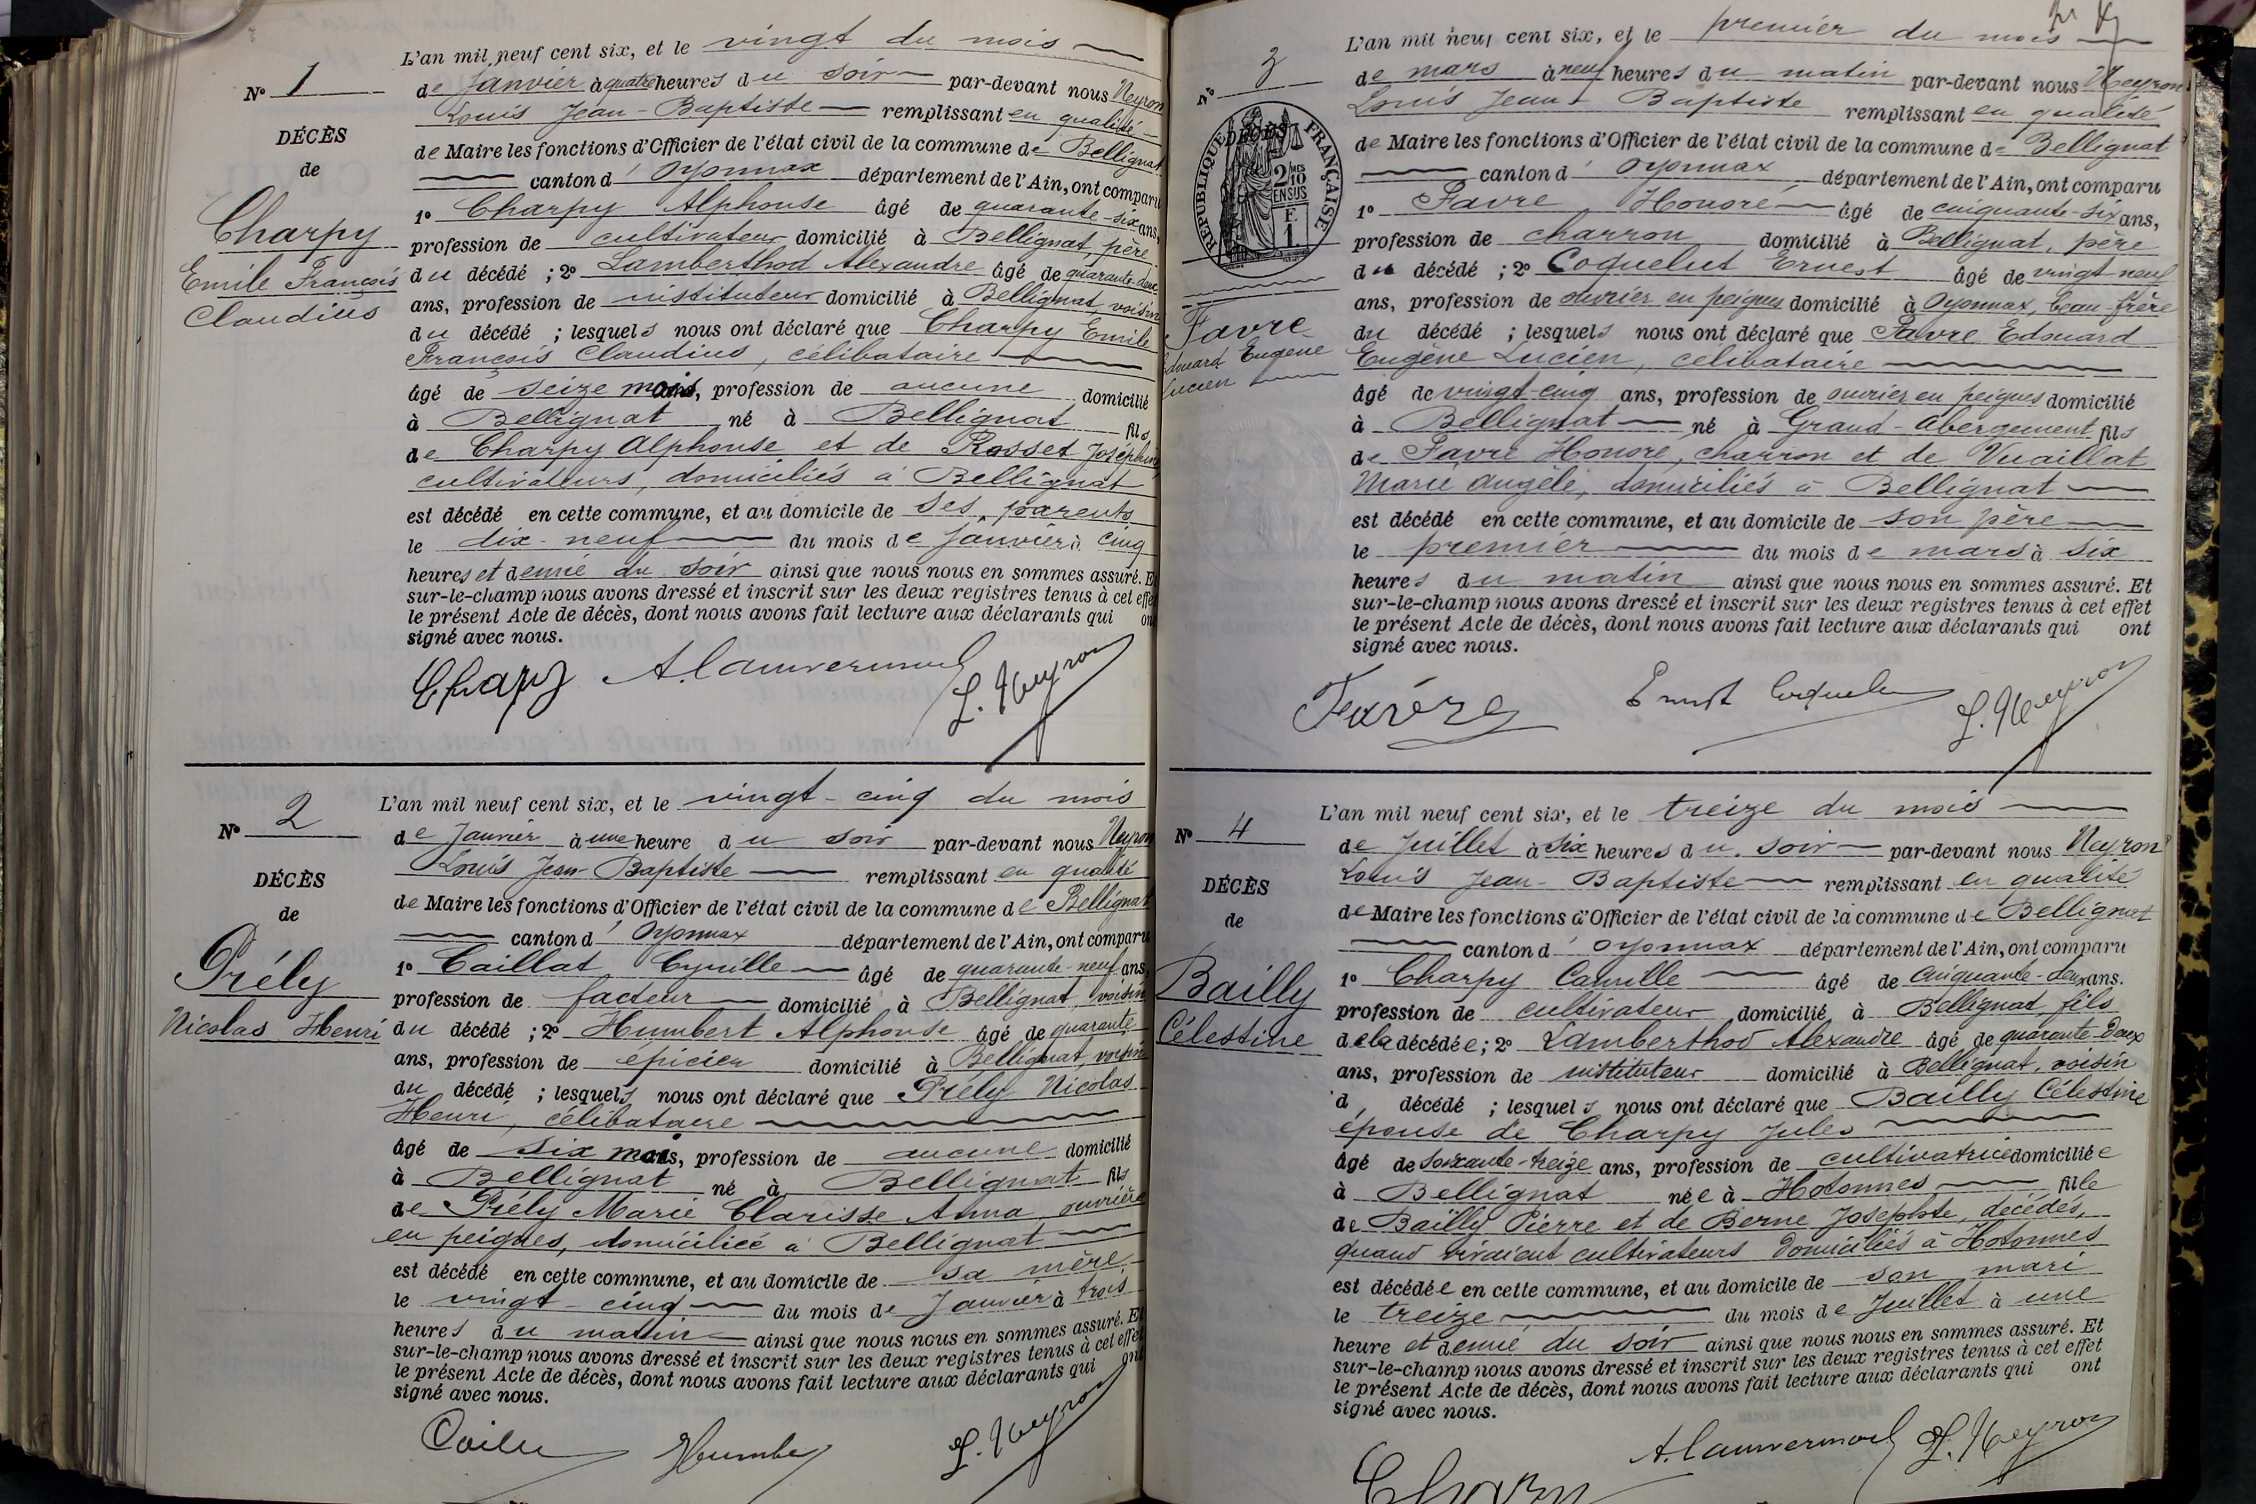 N° 1
DÉCÈS
de
Charpy
Emile François
Claudius
L'an mil neuf cent six, et le vingt du mois
de Janvier à quatre heures du soir par-devant nous Neyron
Louis Jean-Baptiste remplissant en qualité
de Maire les fonctions d'Officier de l'état civil de la commune de Bellignat
canton d'Oyonnax département de l'Ain, ont comparu
1° Charpy Alphonse âgé de quarante-six ans,
profession de cultivateur domicilié à Bellignat, père
du décédé ; 2° Lamberthod Alexandre âgé de quarante-deux
ans, profession de instituteur domicilié à Bellignat, voisin
du décédé ; lesquels nous ont déclaré que Charpy Emile
François Claudius, célibataire
âgé de seize mois, profession de aucune domicilié
à Bellignat né à Bellignat fils
de Charpy Alphonse et de Rosset Joséphine
cultivateurs, domiciliés à Bellignat
est décédé en cette commune, et au domicile de ses parents
le dix-neuf du mois de Janvier à cinq
heures et demie du soir ainsi que nous nous en sommes assuré. Et
sur-le-champ nous avons dressé et inscrit sur les deux registres tenus à cet effet
le présent Acte de décès, dont nous avons fait lecture aux déclarants qui ont
signé avec nous.
Charpy L. Neyron
N° 2
DÉCÈS
de
Prély
Nicolas Henri
L'an mil neuf cent six, et le vingt-cinq du mois
de Janvier à une heure du soir par-devant nous Neyron
Louis Jean-Baptiste remplissant en qualité
de Maire les fonctions d'Officier de l'état civil de la commune de Bellignat
canton d'Oyonnax département de l'Ain, ont comparu
1° Caillat Cyrille âgé de quarante-neuf ans,
profession de facteur domicilié à Bellignat, voisin
du décédé ; 2° Humbert Alphonse âgé de quarante
ans, profession de épicier domicilié à Bellignat, voisin
du décédé ; lesquels nous ont déclaré que Prély Nicolas
Henri, célibataire
âgé de six mois, profession de aucune domicilié
à Bellignat né à Bellignat fils
de Prély Marie Clarisse Anna ouvrière
en peignes, domiciliée à Bellignat
est décédé en cette commune, et au domicile de sa mère
le vingt-cinq du mois de Janvier à trois
heures du matin ainsi que nous nous en sommes assuré. Et
sur-le-champ nous avons dressé et inscrit sur les deux registres tenus à cet effet
le présent Acte de décès, dont nous avons fait lecture aux déclarants qui ont
signé avec nous.
Humbert L. Neyron
N° 3
RÉPUBLIQUE FRANÇAISE
DÉCÈS
2/10 EN SUS
F.
1
Favre
Edouard Eugène
Lucien
L'an mil neuf cent six, et le premier du mois
de mars à neuf heures du matin par-devant nous Neyron
Louis Jean-Baptiste remplissant en qualité
de Maire les fonctions d'Officier de l'état civil de la commune de Bellignat
canton d'Oyonnax département de l'Ain, ont comparu
1° Favre Honoré âgé de cinquante-six ans,
profession de charron domicilié à Bellignat, père
du décédé ; 2° Coquelut Ernest âgé de vingt neuf
ans, profession de ouvrier en peignes domicilié à Oyonnax, beau-frère
du décédé ; lesquels nous ont déclaré que Favre Edouard
Eugène Lucien, célibataire
âgé de vingt-cinq ans, profession de ouvrier en peignes domicilié
à Bellignat né à Grand-Abergement fils
de Favre Honoré, charron et de Vuaillat
Marie Angèle, domiciliés à Bellignat
est décédé en cette commune, et au domicile de son père
le premier du mois de mars à six
heures du matin ainsi que nous nous en sommes assuré. Et
sur-le-champ nous avons dressé et inscrit sur les deux registres tenus à cet effet
le présent Acte de décès, dont nous avons fait lecture aux déclarants qui ont
signé avec nous.
Favre Ernest Coquelut L. Neyron
N° 4
DÉCÈS
de
Bailly
Célestine
L'an mil neuf cent six, et le treize du mois
de Juillet à six heures du soir par-devant nous Neyron
Louis Jean-Baptiste remplissant en qualité
de Maire les fonctions d'Officier de l'état civil de la commune de Bellignat
canton d'Oyonnax département de l'Ain, ont comparu
1° Charpy Camille âgé de cinquante-deux ans.
profession de cultivateur domicilié à Bellignat, fils
de la décédée ; 2° Lamberthod Alexandre âgé de quarante-deux
ans, profession de instituteur domicilié à Bellignat, voisin
d décédé ; lesquels nous ont déclaré que Bailly Célestine
épouse de Charpy Jules
âgé de soixante-treize ans, profession de cultivatrice domiciliée
à Bellignat née à Hotonnes fille
de Bailly Pierre et de Berne Josephte, décédés,
quand vivaient cultivateurs domiciliés à Hotonnes
est décédée en cette commune, et au domicile de son mari
le treize du mois de Juillet à une
heure et demie du soir ainsi que nous nous en sommes assuré. Et
sur-le-champ nous avons dressé et inscrit sur les deux registres tenus à cet effet
le présent Acte de décès, dont nous avons fait lecture aux déclarants qui ont
signé avec nous.
Charpy L. Neyron